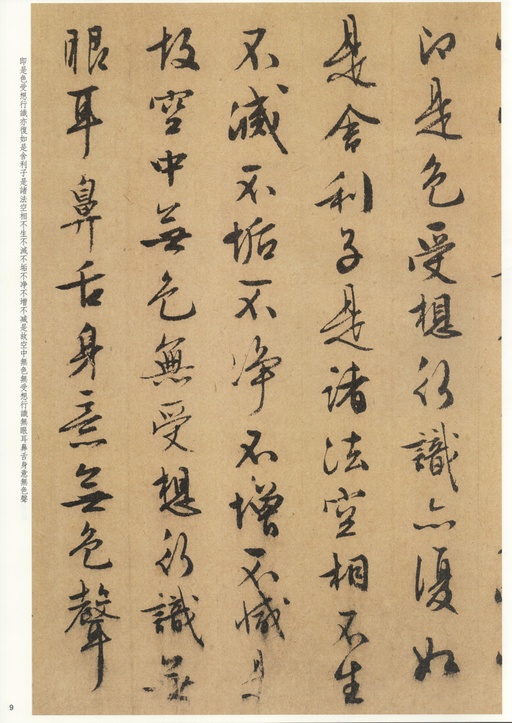 即是色受想行識亦復如
是舍利子是諸法空相不生
不滅不垢不净不增不減是
故空中無色無受想行識無
眼耳鼻舌身意無色聲
即是色受想行識亦復如是舍利子是諸法空相不生不滅不垢不净不增不减是故空中無色無受想行識無眼耳鼻舌身意無色聲
9